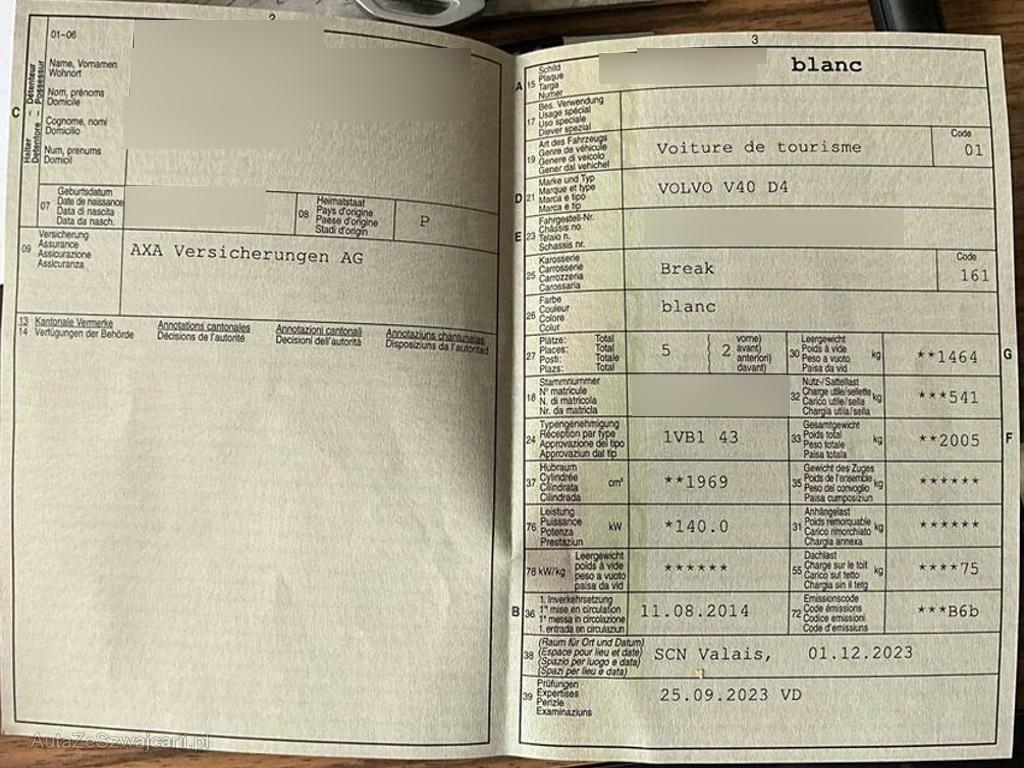 2
01-06
Name, Vornamen
Wohnort
Nom, prénoms
Domicile
Cognome, nomi
Domicilio
Num, prenums
Domicil
C
Halter – Détenteur
Detentore – Possessur
07
Geburtsdatum
Date de naissance
Data di nascita
Data da nasch.
08
Heimatstaat
Pays d'origine
Paese d'origine
Stadi d'origin
P
09
Versicherung
Assurance
Assicurazione
Assicuranza
AXA Versicherungen AG
13
14
Kantonale Vermerke
Verfügungen der Behörde
Annotations cantonales
Décisions de l'autorité
Annotazioni cantonali
Decisioni dell'autorità
Annotaziuns chantunalas
Disposiziuns da l'autoritad
AutaZeSzwajcarii.pl
3
A 15
Schild
Plaque
Targa
Numer
blanc
17
Bes. Verwendung
Usage spécial
Uso speciale
Diever spezial
19
Art des Fahrzeugs
Genre de véhicule
Genere di veicolo
Gener dal vehichel
Voiture de tourisme
Code
01
D 21
Marke und Typ
Marque et type
Marca e tipo
Marca e tip
VOLVO V40 D4
E 23
Fahrgestell-Nr.
Châssis no
Telaio n.
Schassis nr.
25
Karosserie
Carrosserie
Carrozzeria
Carossaria
Break
Code
161
26
Farbe
Couleur
Colore
Colur
blanc
27
Plätze: Total
Places: Total
Posti: Totale
Plazs: Total
5
2
vorne)
avant)
anteriori)
davant)
30
Leergewicht
Poids à vide
Peso a vuoto
Paisa da vid
kg
**1464
G
18
Stammnummer
N° matricule
N. di matricola
Nr. da matricla
32
Nutz-/Sattellast
Charge utile/sellette
Carico utile/sella
Chargia utila/sella
kg
***541
24
Typengenehmigung
Réception par type
Approvazione del tipo
Approvaziun dal tip
1VB1 43
33
Gesamtgewicht
Poids total
Peso totale
Paisa totala
kg
**2005
F
37
Hubraum
Cylindrée
Cilindrata
Cilindrada
cm³
**1969
35
Gewicht des Zuges
Poids de l'ensemble
Peso del convoglio
Paisa cumposiziun
kg
******
76
Leistung
Puissance
Potenza
Prestaziun
kW
*140.0
31
Anhängelast
Poids remorquable
Carico rimorchiato
Chargia annexa
kg
******
78 kW/kg
Leergewicht
poids à vide
peso a vuoto
paisa da vid
******
55
Dachlast
Charge sur le toit
Carico sul tetto
Chargia sin il tetg
kg
****75
B 36
1. Inverkehrsetzung
1re mise en circulation
1a messa in circolazione
1. entrada en circulaziun
11.08.2014
72
Emissionscode
Code émissions
Codice emissioni
Code d'emissiuns
***B6b
38
(Raum für Ort und Datum)
(Espace pour lieu et date)
(Spazio per luogo e data)
(Spazi per lieu e data)
SCN Valais, 01.12.2023
39
Prüfungen
Expertises
Perizie
Examinaziuns
25.09.2023 VD